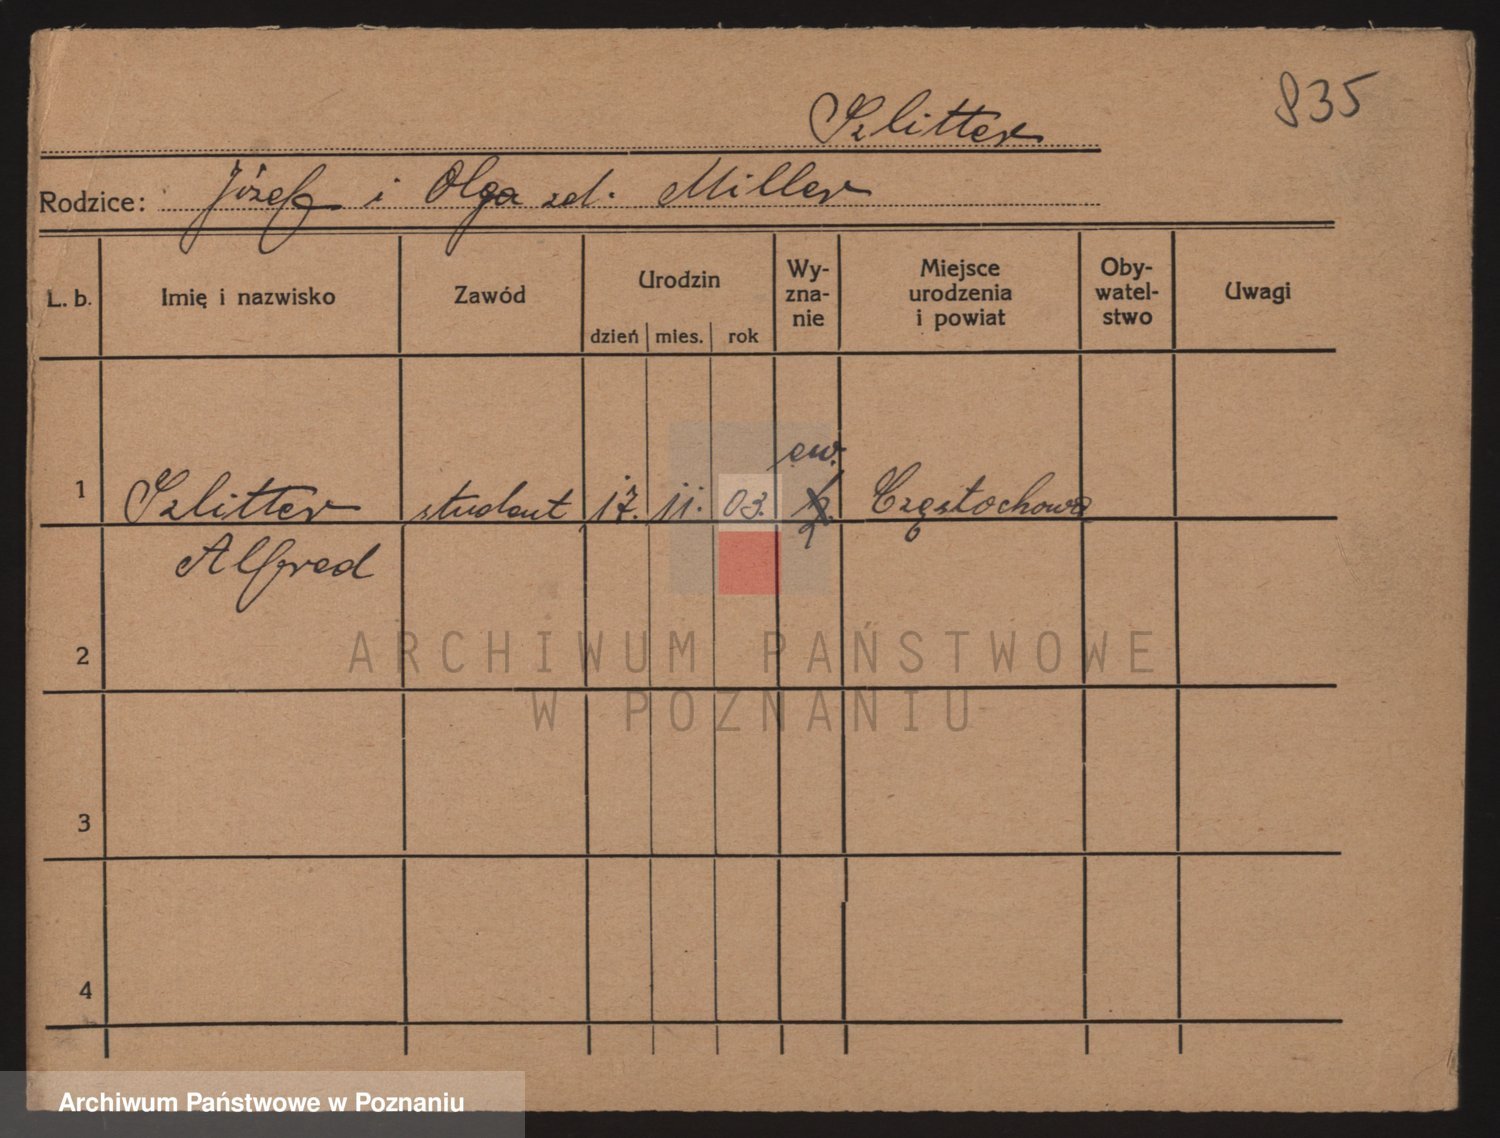 835
Szlitter
Rodzice: Józef i Olga zd. Miller
L. b. Imię i nazwisko Zawód Urodzin dzień mies. rok Wy-zna-nie Miejsce urodzenia i powiat Oby-watel-stwo Uwagi
ew.
1 Szlitter student 17. 11. 03. Częstochowa
Alfred
2
3
4
ARCHIWUM PAŃSTWOWE
W POZNANIU
Archiwum Państwowe w Poznaniu